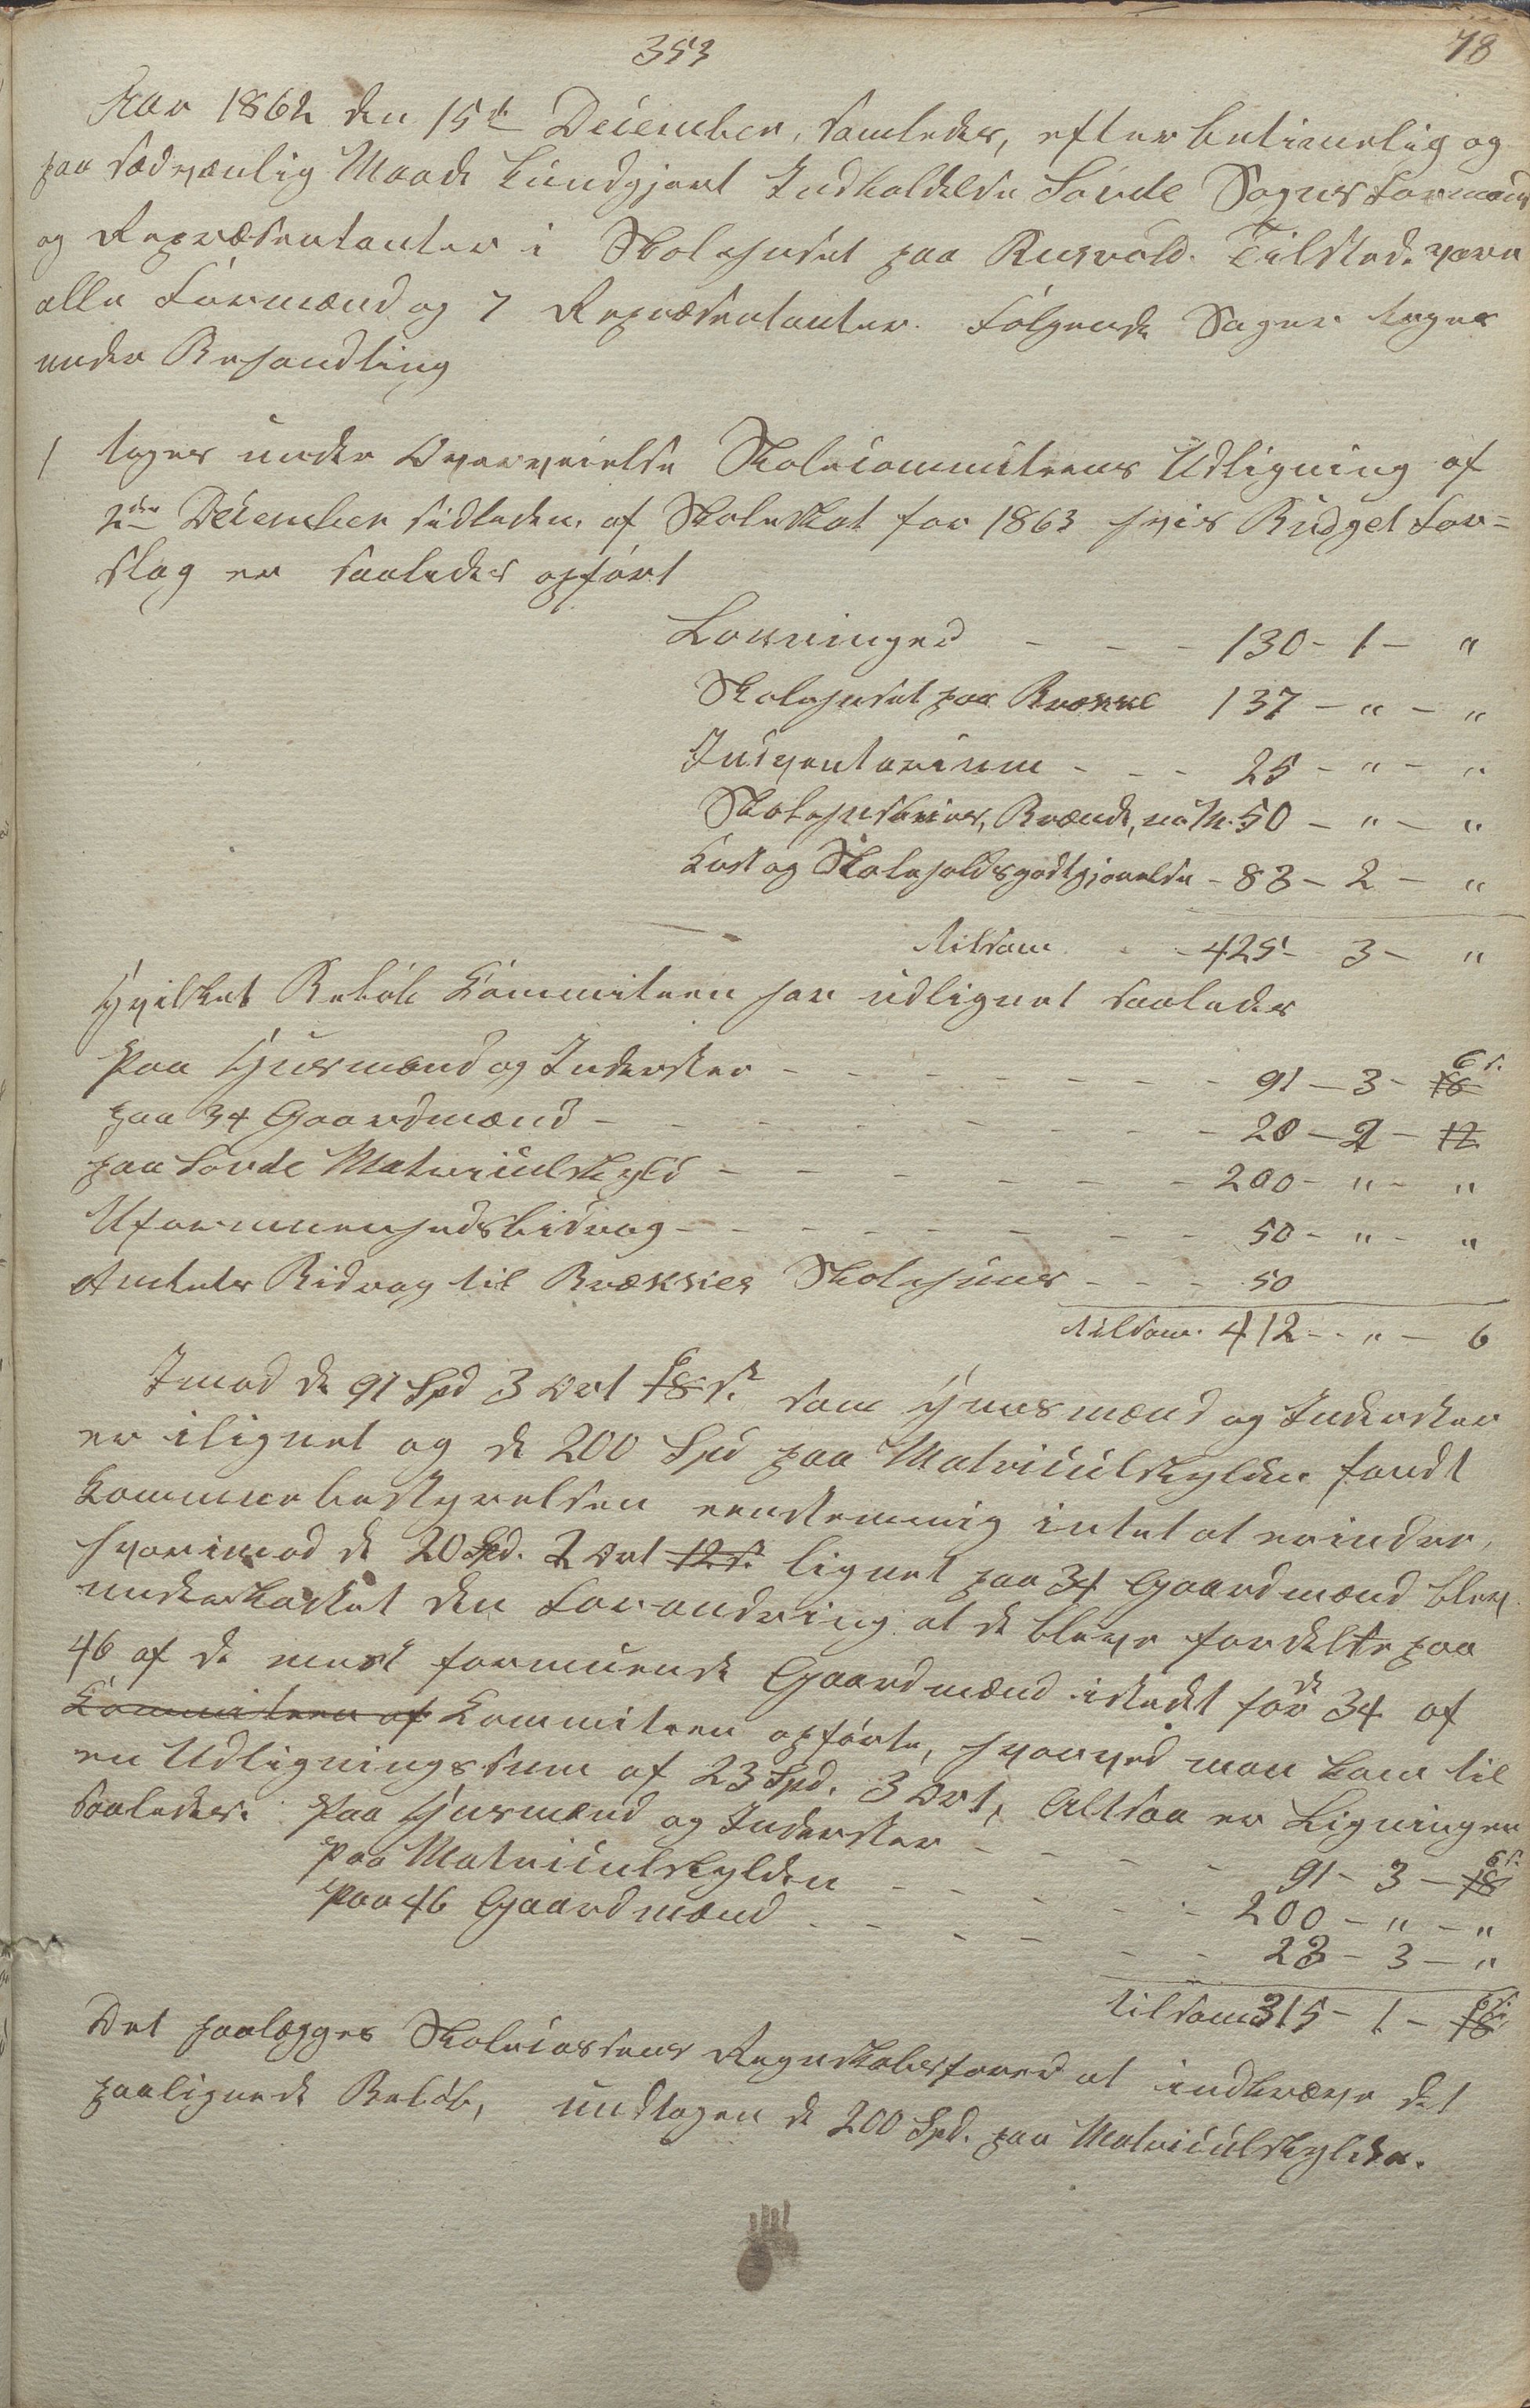 353
78
Aar 1862 den 15de December, samledes, efter betimelig og
paa sædvanlig Maade kundgjort Indkaldelse Sovde Sogns Formænd
og Repræsentanter i Skolehuset paa Rusvold. Tilstede vare
alle Formænd og 7 Repræsentanter. Følgende Sager toges
under Behandling
1 toges under Overveielse Skolecommiteens Udligning af
2den December sidstleden, af Skoleskat for 1863 hvis Budget For=
slag er saaledes opført
Lønninger - - - 130 - 1 - "
Skolehuset paa Brække 137 - " - "
Indventarium - - - 25 - " - "
Skolehusleier, Brænde, 50 - " - "
Kost og Skoleholdsgodtgjørelse - 83 - 2 - "
tilsam - - 425 - 3 - "
Hvilket Beløb Kommiteen har udlignet saaledes
Paa Husmænd og Inderster - - - - - - - 91 - 3 - 18 6 s.
paa 34 Gaardmænd - - - - - - - 20 - 2 - 12
paa Sovde Matriculskyld - - - - - - 200 - " - "
Uformuenhedsbidrag - - - - - - - 50 - " - "
Amtets Bidrag til Brækkes Skolehuus - - - 50
tilsam. 412 - " - 6
Imod de 91 Spd 3 Ort 18 6 s. som Huusmænd og Inderster
er ilignet og de 200 Spd paa Matriculskylden fandt
Kommunebestyrelsen eenstemmig intet at erindre,
hvorimod de 20 Spd. 2 Ort 12 s. lignet paa 34 Gaardmænd blev
underkastet den Forandring at de bleve fordelte paa
46 af de mest formuende Gaardmænd istedet for de 34 af
Kommiteen af Kommiteen opførte, hvorved man kom til
en Udligningssum af 23 Spd. 3 Ort, Altsaa er Ligningen
saaledes. Paa Husmænd og Inderster - - - - 91 - 3 - 18 6 s.
Paa Matriculskylden - - - - - 200 - " - "
Paa 46 Gaardmænd - - - - - - 23 - 3 - "
tilsam 315 - 1 - 18 6 s.
Det paalægges Skolecassens Regnskabsfører at indkræve det
paalignede Beløb, undtagen de 200 Spd. paa Matriculskylden.